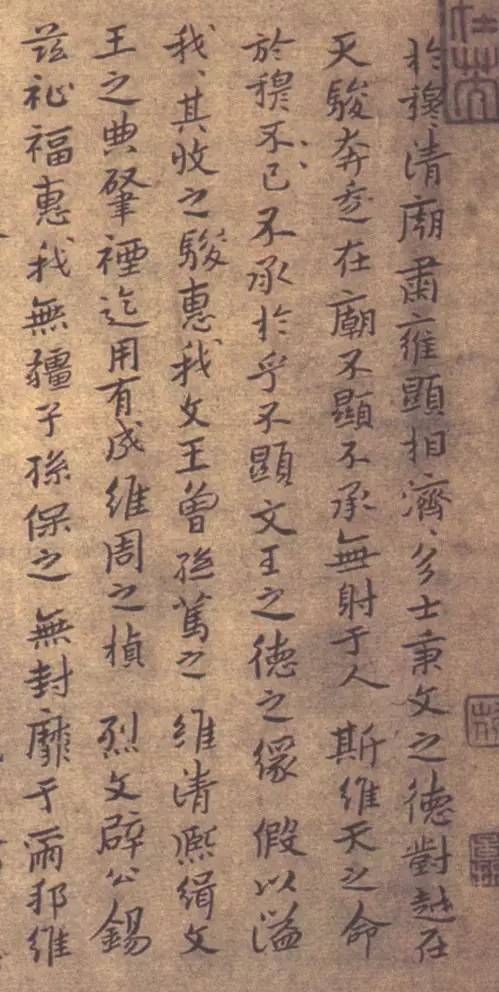 於穆、清廟肅雝顯相濟、多士秉文之德對越在
天駿奔走在廟不顯不承無射于人 斯維天之命
於穆不已不承於乎不顯文王之德之 假以溢
我、其收之駿惠我文王曾孫篤之 維清熙緝文
王之典肇禋迄用有成維周之楨 烈文辟公錫
茲祉福惠我無疆子孫保之 無封靡于爾邦維